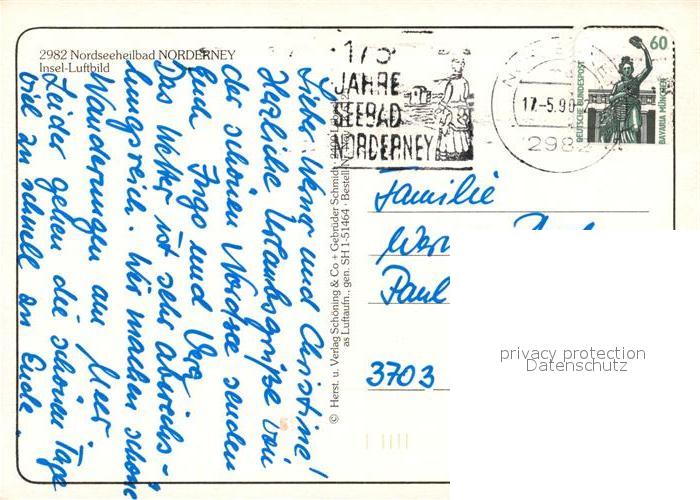 2982 Nordseeheilbad NORDERNEY
Insel-Luftbild
Lieber Werner und Christine!
Herzliche Urlaubsgrüße von
der schönen Nordsee senden
Euch Ingo und Vera
Das Wetter ist sehr abwechs-
lungsreich. Wir machen schöne
Wanderungen am Meer.
Leider gehen die schönen Tage
viel zu schnell zu Ende.
© Herst. u. Verlag Schöning & Co + Gebrüder Schmidt
as Luftaufn., gen. SH 1-51464 · Bestell-Nr.
175
JAHRE
SEEBAD
NORDERNEY
17.-5.90
2982
60
DEUTSCHE BUNDESPOST
BAVARIA MÜNCHEN
Familie
Paul
3703
privacy protection
Datenschutz